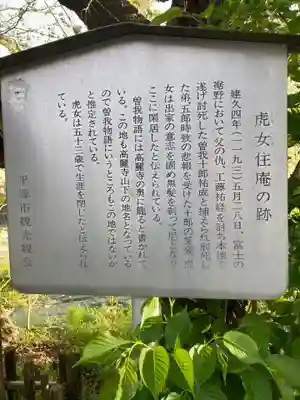 虎女住庵の跡
建久四年(一一九三)五月二八日、富士の
裾野において父の仇、工藤祐経を討ち本懐を
遂げ討死した曽我十郎祐成と捕えられ刑死し
た弟、五郎時致の悲報を受けた十郎の
女は出家の意志を固め黒髪を剃って尼となり
ここに閑居したと伝えられている。
曽我物語には高麗寺の奥に籠ると書かれて
いる。この地も高麗寺山下の地名となっている
ので曽我物語にいうところもこの地ではないか
と推定されている。
虎女は五十三歳で生涯を閉じたと伝えられ
ている。
平塚市観光協会